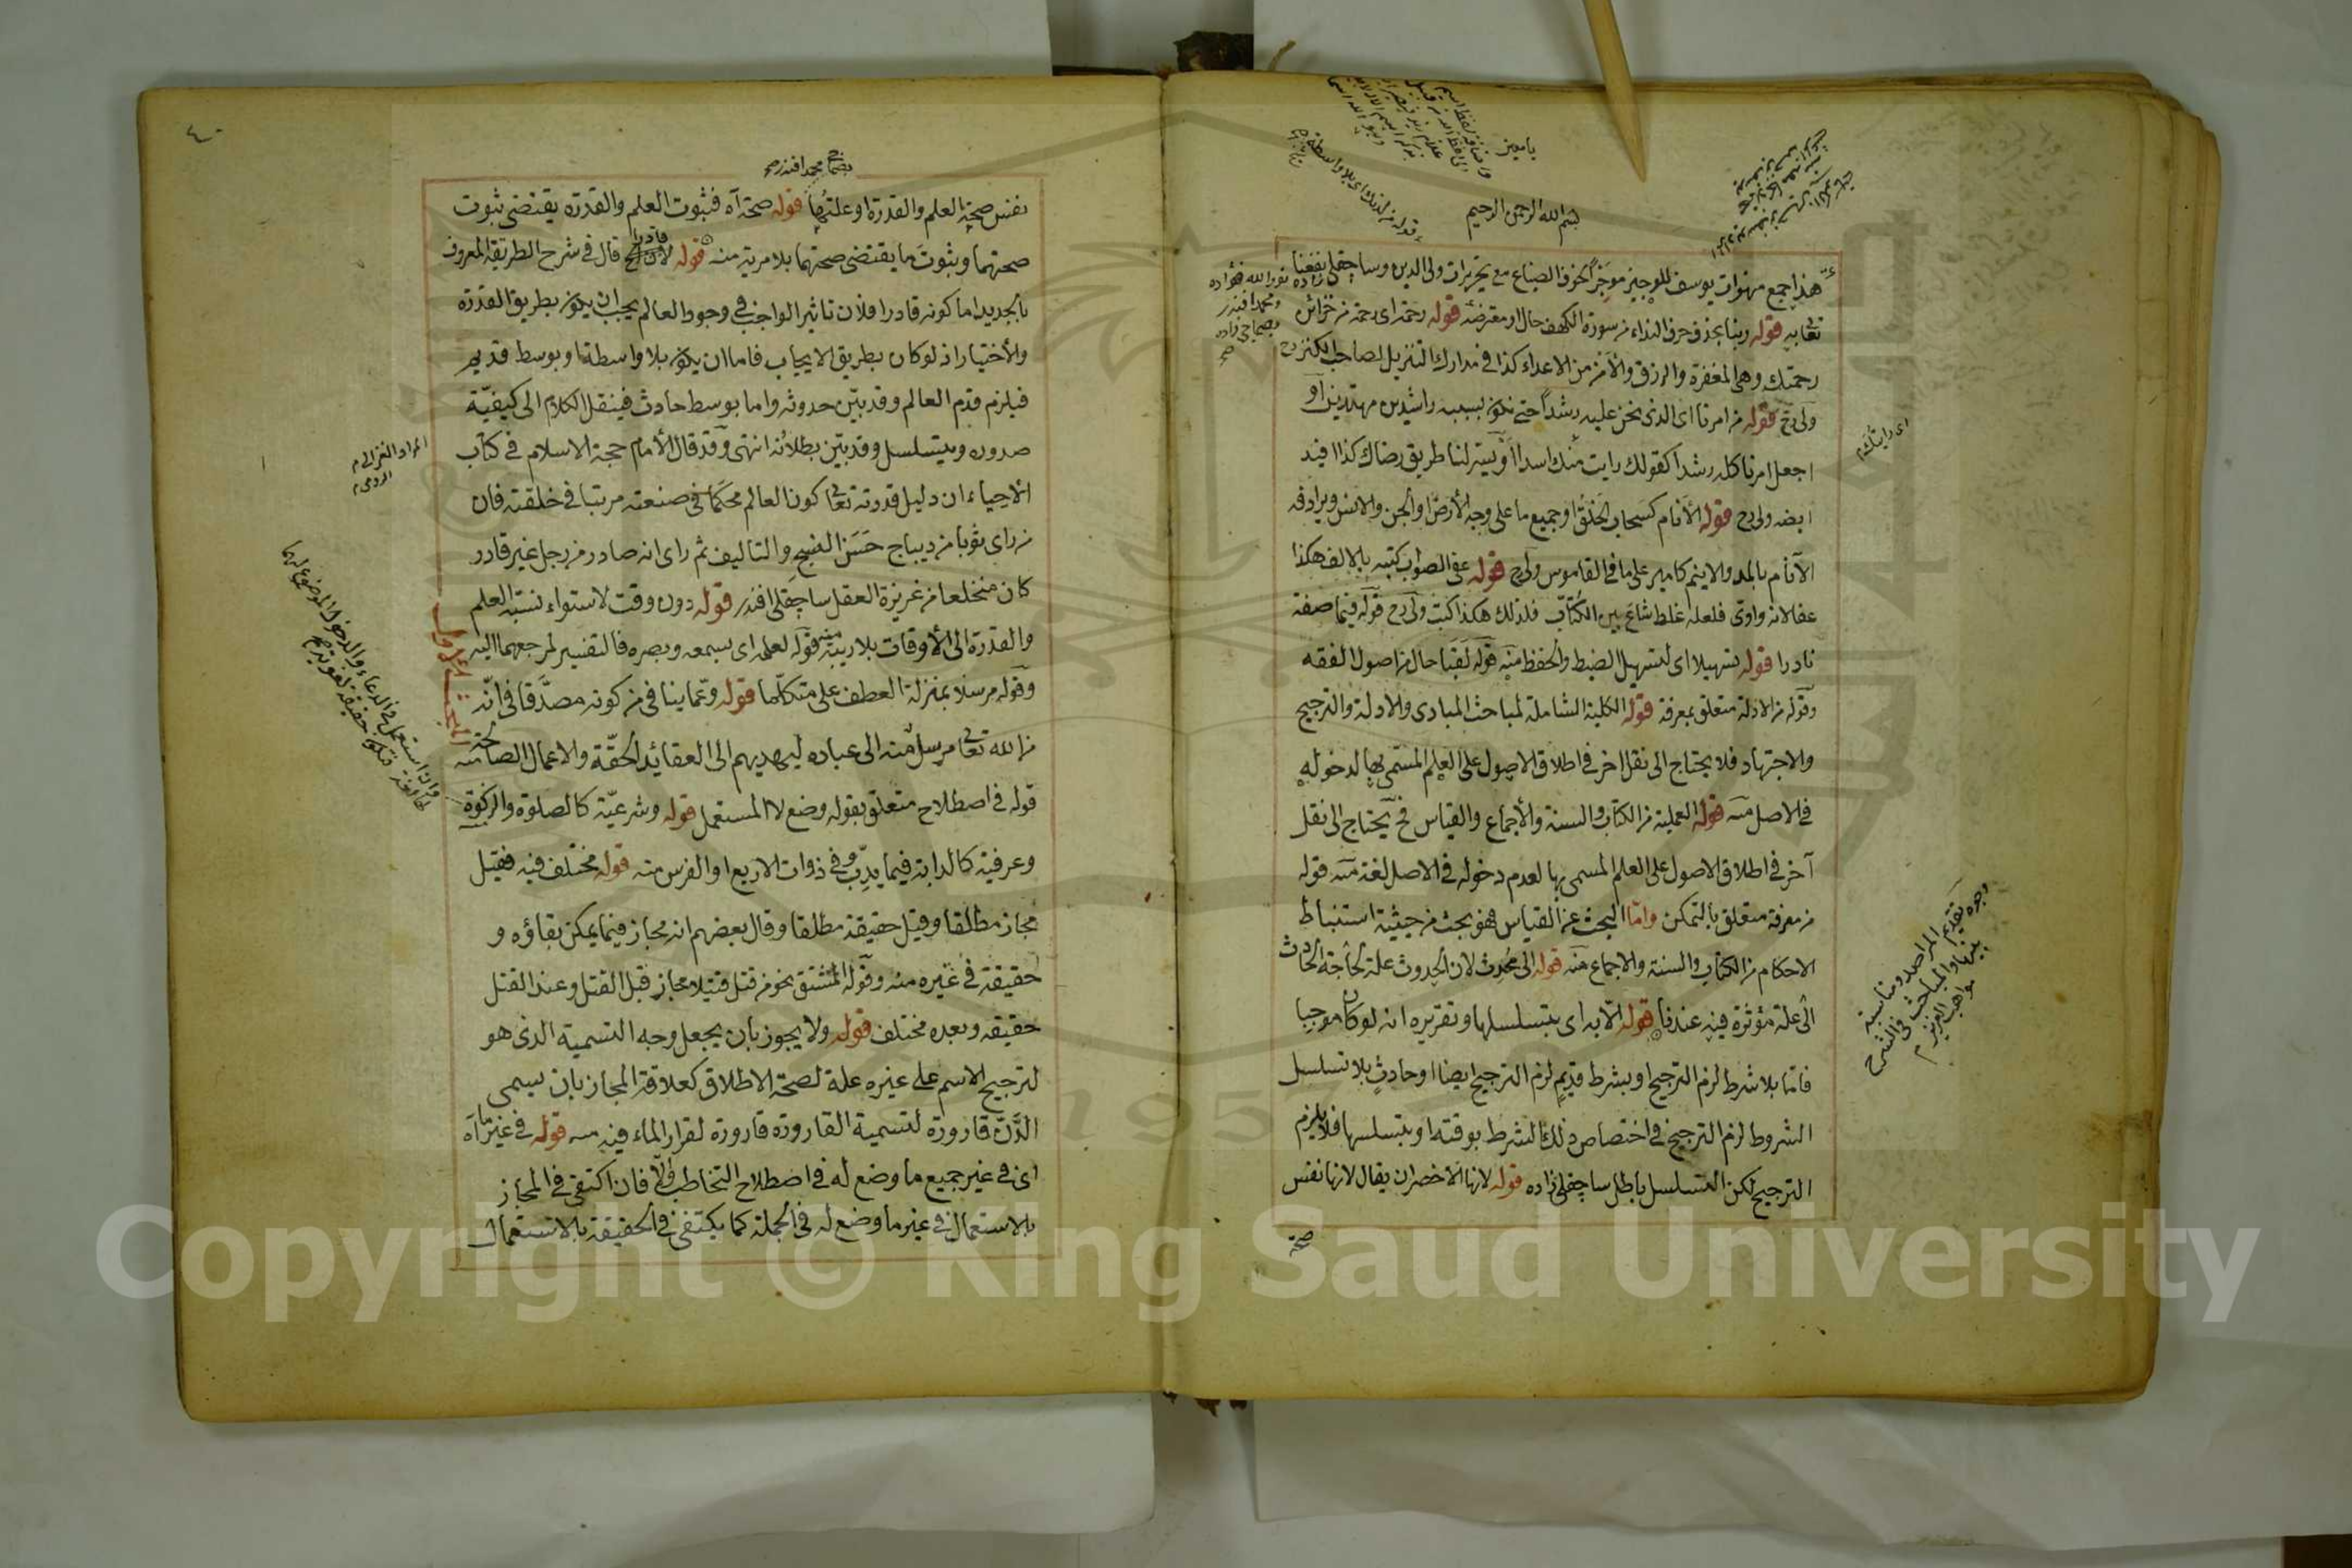 يا معين
بسم الله الرحمن الرحيم
هذا جمع منهوات يوسف للوجيز موجزا بحذف الضباع مع تحريرات ولى الدين وساچقلى نفعنا
تعابه قوله ربنا بحذف حرف النداء من سورة الكهف حال او معترضة قوله رحمة اى رحمة من خزائن
رحمتك وهى المغفرة والرزق والأمن من الاعداء كذا فى مدارك التنزيل لصاحب الكنز رح
ولى رح قوله من امرنا اى الذى نحن عليه رشداً حتى نكون بسببه راشدين مهتدين او
اجعل امرنا كله رشدا كقولك رايت منك اسداً او يسر لنا طريق رضاك كذا افيد
ايضه ولى رح قوله الأنام كسحاب الخلق او جميع ما على وجه الأرض او الجن والانس ويرادفه
الآنام بالمد والانيم كامير على ما فى القاموس ولى رح قوله عفى الصواب كتبه بالالف هكذا
عفا لانه واوى فلعله غلط شائع بين الكتاب فلذلك هكذا كتب ولى رح قوله فيما صفة
نادرا قوله تسهيلا اى لتسهيل الضبط والحفظ منه قوله لقبا حال من اصول الفقه
وقوله من الادلة متعلق بمعرفة قوله الكلية الشاملة لمباحث المبادى والادلة والترجيح
والاجتهاد فلا يحتاج الى نقل اخر فى اطلاق الاصول على العلم المسمى بها لدخوله
فى الاصل منه قوله العملية من الكتاب والسنة والأجماع والقياس فح يحتاج الى نقل
آخر فى اطلاق الاصول على العلم المسمى بها لعدم دخوله فى الاصل لغة منه قوله
من معرفة متعلق بالتمكن واما البحث عن القياس فهو بحث من حيثية استنباط
الاحكام من الكتاب والسنة والاجماع منه قوله الى محدث لان الحدوث علة لحاجة الحادث
الى علة مؤثرة فيه عندنا قوله الا به اى بتسلسلها وتقريره انه لو كان موجبا
فاما بلا شرط لزم الترجيح او بشرط قديم لزم الترجيح ايضا او حادث بلا تسلسل
الشروط لزم الترجيح فى اختصاص ذلك الشرط بوقته او بتسلسلها فلا يلزم
الترجيح لكن التسلسل باطل ساچقلى زاده قوله لانها الاخصر ان يقال لانها نفس
صحة
اى رايتك
وجه تقديم المراصد ومناسبة
بينها والمباحث فى الشرح
٤٠
نفس صحة العلم والقدرة او علتهما قوله صحة آه فثبوت العلم والقدرة يقتضى ثبوت
صحتهما وثبوت ما يقتضى صحتهما بلا مرية منه قوله قادرا قال فى شرح الطريقة المعروف
بالجديد اما كونه قادرا فلان تاثير الواجب فى وجود العالم يجب ان يكون بطريق القدرة
والأختيار اذ لو كان بطريق الايجاب فاما ان يكون بلا واسطة او بوسط قديم
فيلزم قدم العالم وقد بين حدوثه واما بوسط حادث فينقل الكلام الى كيفية
صدوره ويتسلسل وقد بين بطلانه انتهى وقد قال الأمام حجة الاسلام فى كتاب
الأحياء ان دليل قدرته تعالى كون العالم محكما فى صنعته مرتبا فى خلقته فان
من راى ثوبا من ديباج حسن النسج والتاليف ثم راى انه صادر من رجل غير قادر
كان منخلعا من غريزة العقل ساچقلى افندى قوله دون وقت لاستواء نسبة العلم
والقدرة الى الأوقات بلا ريبة منه قوله لعلمه اى بسمعه وبصره فالتفسير لمرجعهما اليه
وقوله مرسلا بمنزلة العطف على متكلما قوله وعما ينافى من كونه مصدقا فى انه
من الله تعالى مرسل منه الى عباده ليهديهم الى العقائد الحقة والاعمال الصالحة منه
قوله فى اصطلاح متعلق بقوله وضع لا المستعمل قوله وشرعية كالصلوة والزكوة
وعرفية كالدابة فيما يدب وفى ذوات الاربع او الفرس منه قوله مختلف فيه فقيل
مجاز مطلقا وقيل حقيقة مطلقا وقال بعضهم انه مجاز فيما يمكن بقاؤه و
حقيقة فى غيره منه وقوله المشتق نحو من قتل قتيلا مجاز قبل القتل وعند القتل
حقيقه وبعده مختلف قوله ولا يجوز بان يجعل وجه التسمية الذى هو
لترجيح الاسم على غيره علة لصحة الاطلاق كعلاقة المجاز بان يسمى
الدن قارورة لتسمية القارورة قارورة لقرار الماء فيه منه قوله فى غير ما آه
اى فى غير جميع ما وضع له فى اصطلاح التخاطب والا فان اكتفى فى المجاز
بالاستعمال فى غير ما وضع له فى الجملة كما يكتفى فى الحقيقة بالاستعمال
المراد الغزالى
Copyright © King Saud University
195